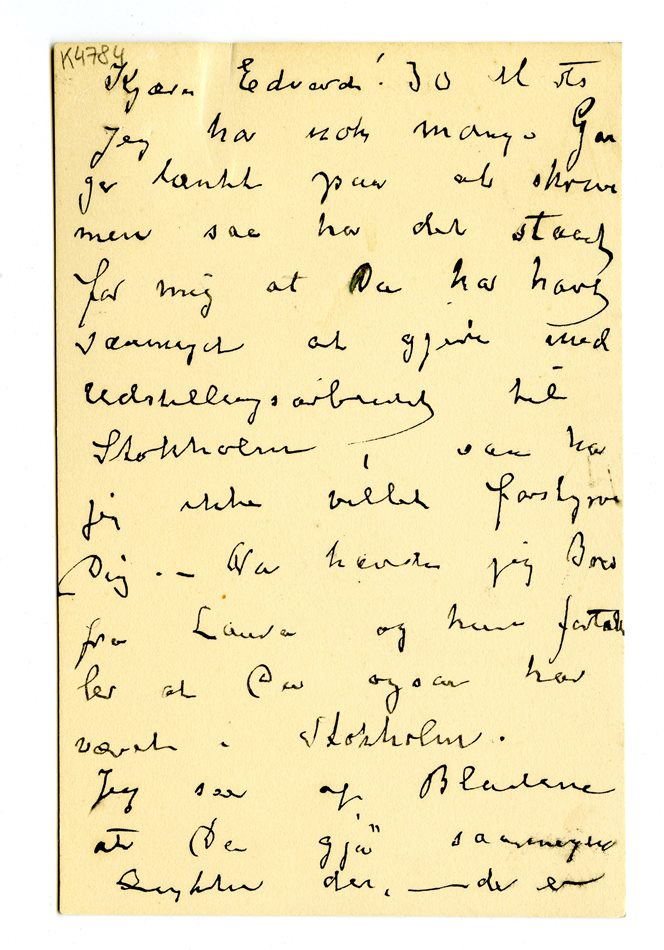 K4784
Kjære Edvard! 30
Jeg har nok mange Gan
ge tænkt paa at skrive
men saa har det staaet
for mig at Du har havt
saameget at gjøre med
Udstillingsarbeidet til
Stokholm, saa har
jeg ikke villet forstyrre
Dig. – Nu hævde jeg Brev
fra Laura og hun fortæl
ler at Du ogsaa har
været i Stokholm.
Jeg saa af Bladene
at Du gjør saameget
Lykke der, – der er